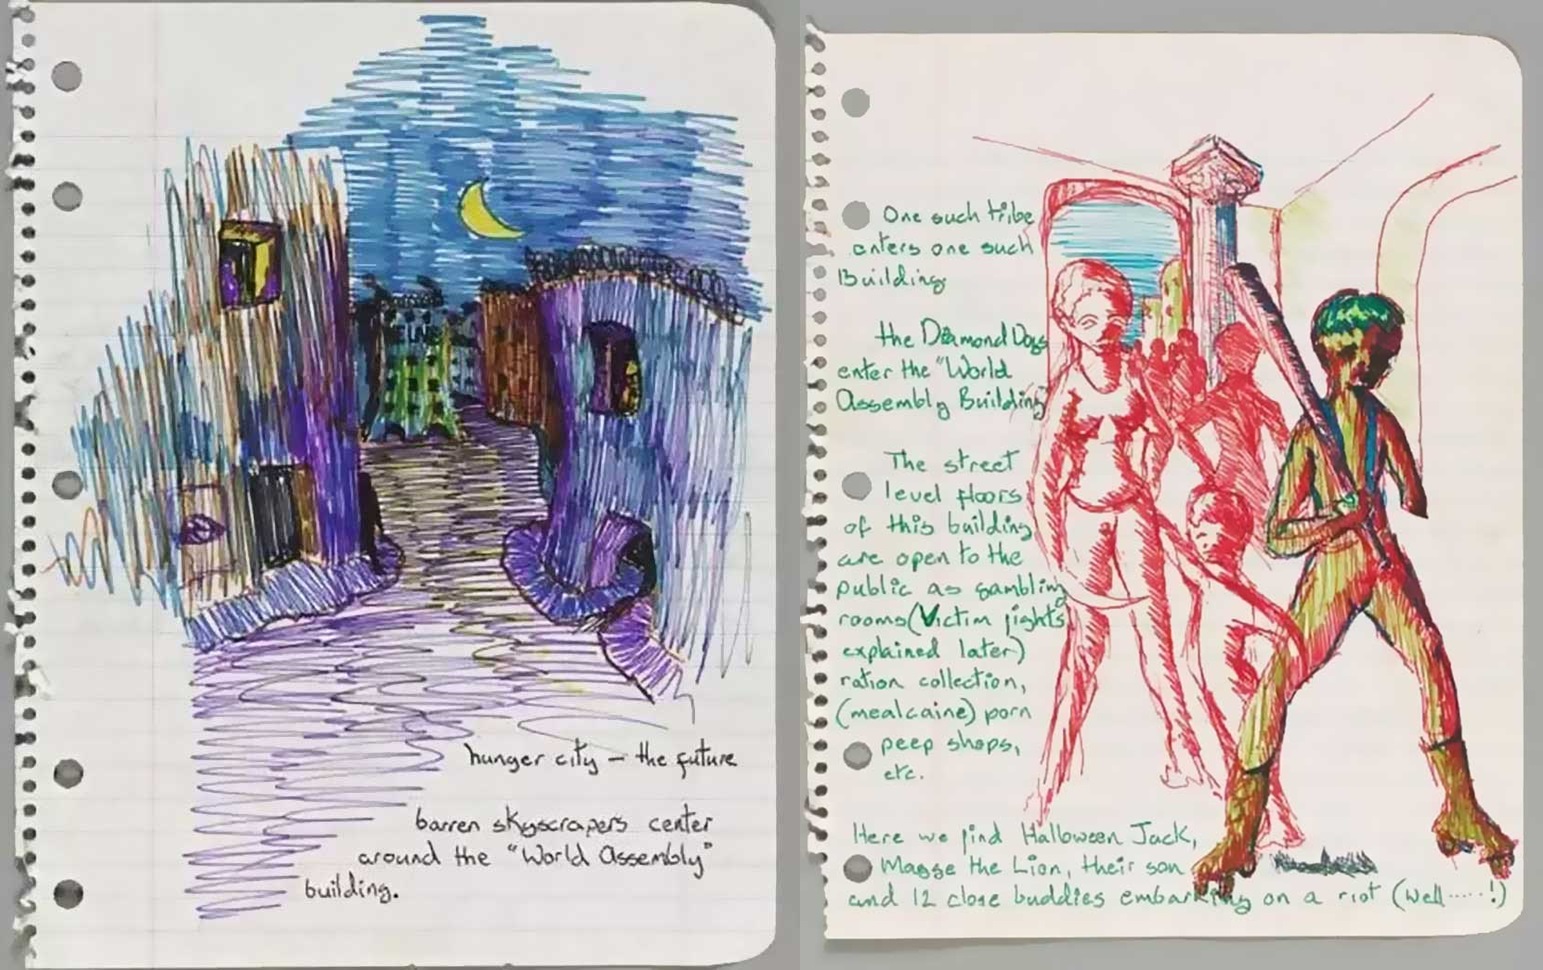 hunger city – the future
barren skyscrapers center
around the "World Assembly"
building.
One such tribe
enters one such
Building
the Diamond Dogs
enter the "World
Assembly Building"
The street
level floors
of this building
are open to the
public as gambling
rooms (Victim fights
explained later)
ration collection,
(mealcaine) porn
peep shops,
etc.
Here we find Halloween Jack,
Magge the Lion, their son
and 12 close buddies embarking on a riot (Well.....!)